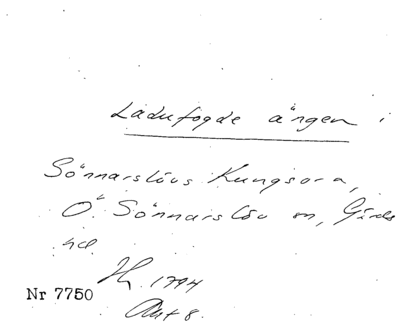 Ladufogde ängen i
Sönnarslövs Kungsara,
Ö. Sönnarslöv sn, Gärds
hd.
1794
Nr 7750
Akt 8.